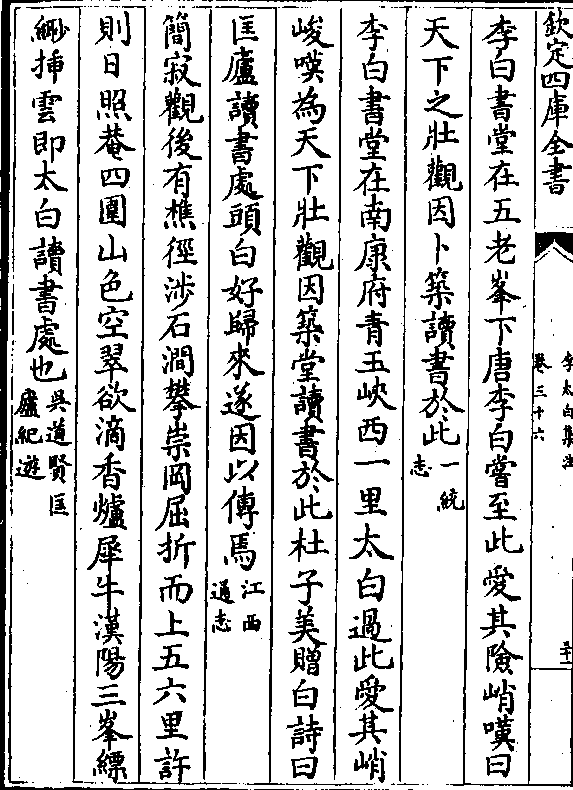 欽定四庫全書
李太白集注
卷三十六
李白書堂在五老峯下唐李白嘗至此愛其險峭嘆曰
天下之壯觀因卜築讀書於此一統志
李白書堂在南康府青玉峽西一里太白過此愛其峭
峻嘆為天下壯觀因築堂讀書於此杜子美贈白詩曰
匡廬讀書處頭白好歸來遂因以傳焉江西通志
簡寂觀後有樵徑涉石澗攀崇岡屈折而上五六里許
則日照菴四圍山色空翠欲滴香爐犀牛漢陽三峯縹
緲揷雲即太白讀書處也吳道賢匡廬紀遊